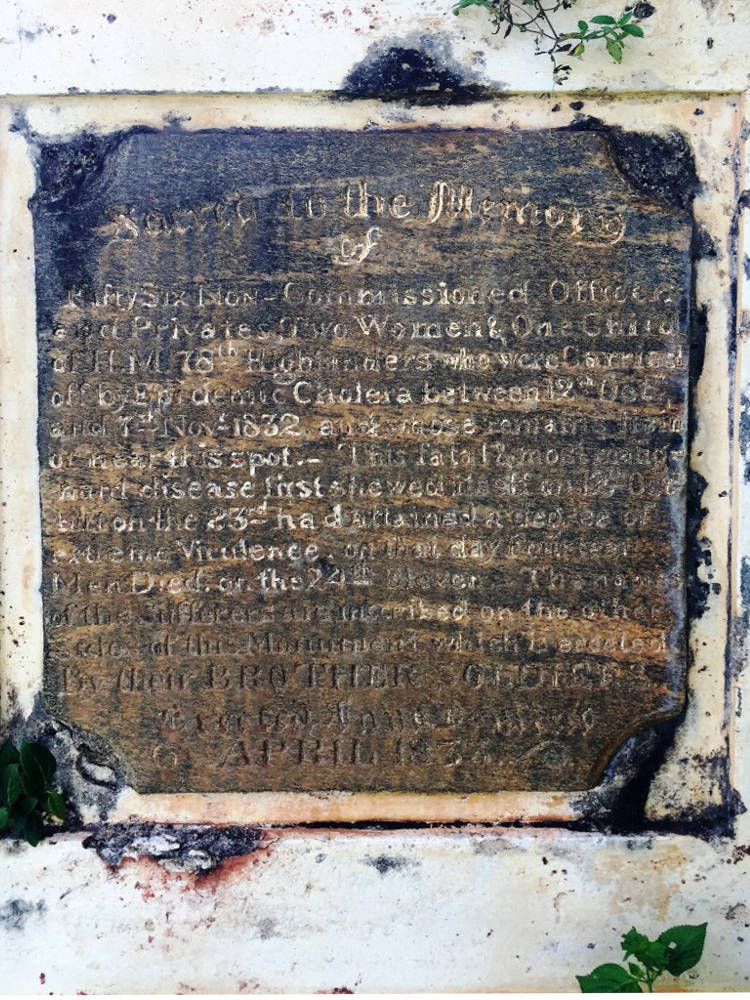 Sacred to the Memory
of
Fifty Six Non-Commissioned Officers
and Privates, Two Women & One Child
of H.M. 78th Highlanders who were Carried
off by Epidemic Cholera between 12th Octr
and 7th Novr 1832, and whose remains
or near this spot.- This fatal & most
disease first shewed itself on 12th Octr
but on the 23rd had attained a degree of
extreme Virulence, on that day Fourteen
Men Died, on the 24th Eleven. The names
of the Sufferers are inscribed on the other
sides of this Monument which is erected
By their BROTHER SOLDIERS.
Erected Anno Domini
APRIL